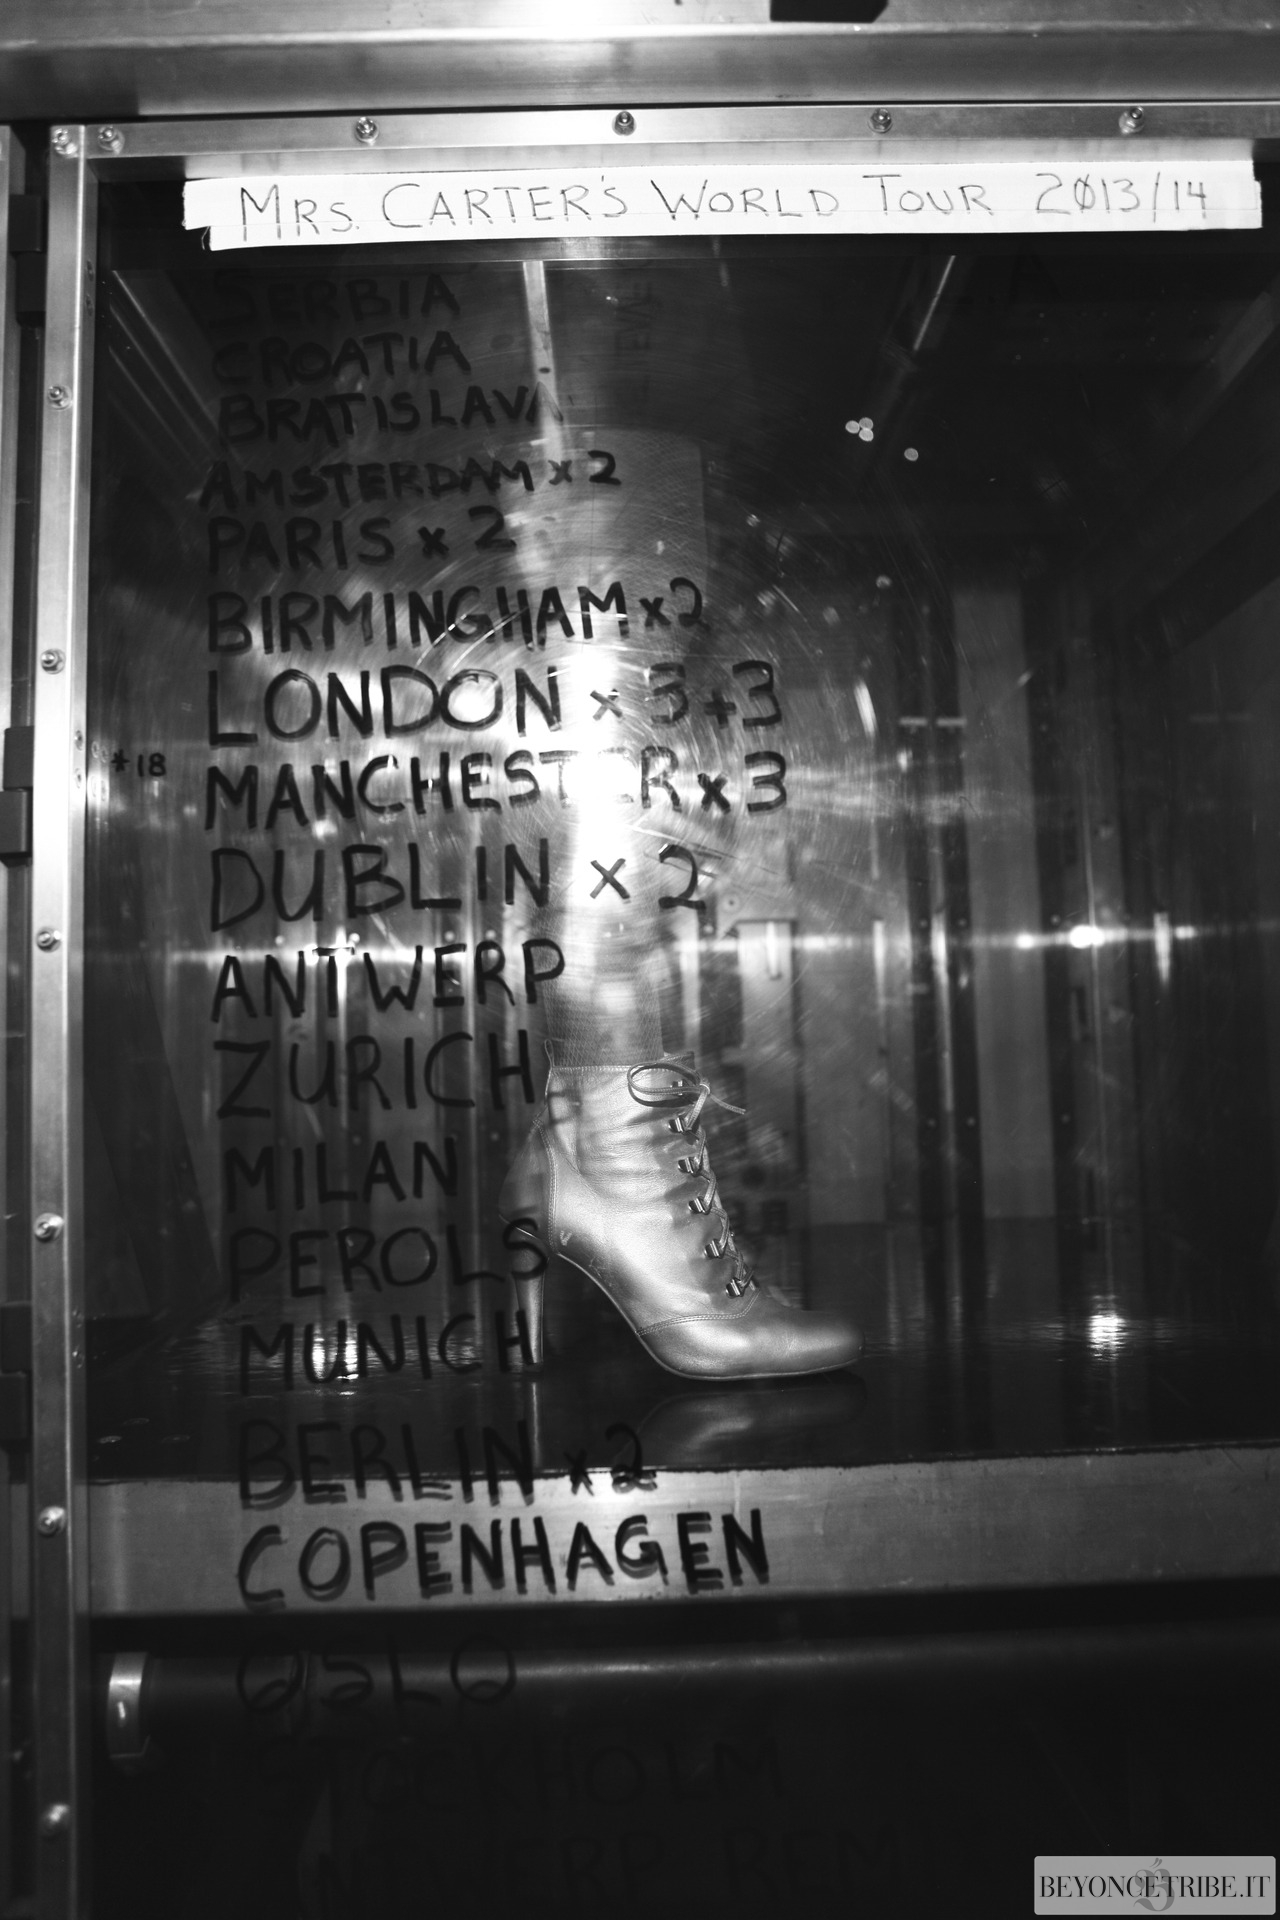 MRS. CARTER'S WORLD TOUR 2013/14
SERBIA
CROATIA
BRATISLAVA
AMSTERDAM x 2
PARIS x 2
BIRMINGHAM x 2
LONDON x 3+3
#18
MANCHESTER x 3
DUBLIN x 2
ANTWERP
ZURICH
MILAN
PEROLS
MUNICH
BERLIN x 2
COPENHAGEN
OSLO
STOCKHOLM
BEYONCETRIBE.IT